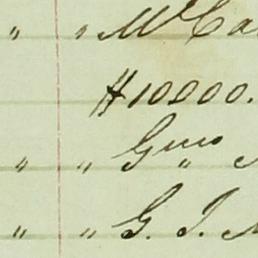 " " McCa
#10000.
" " Gus "
" " G. J.